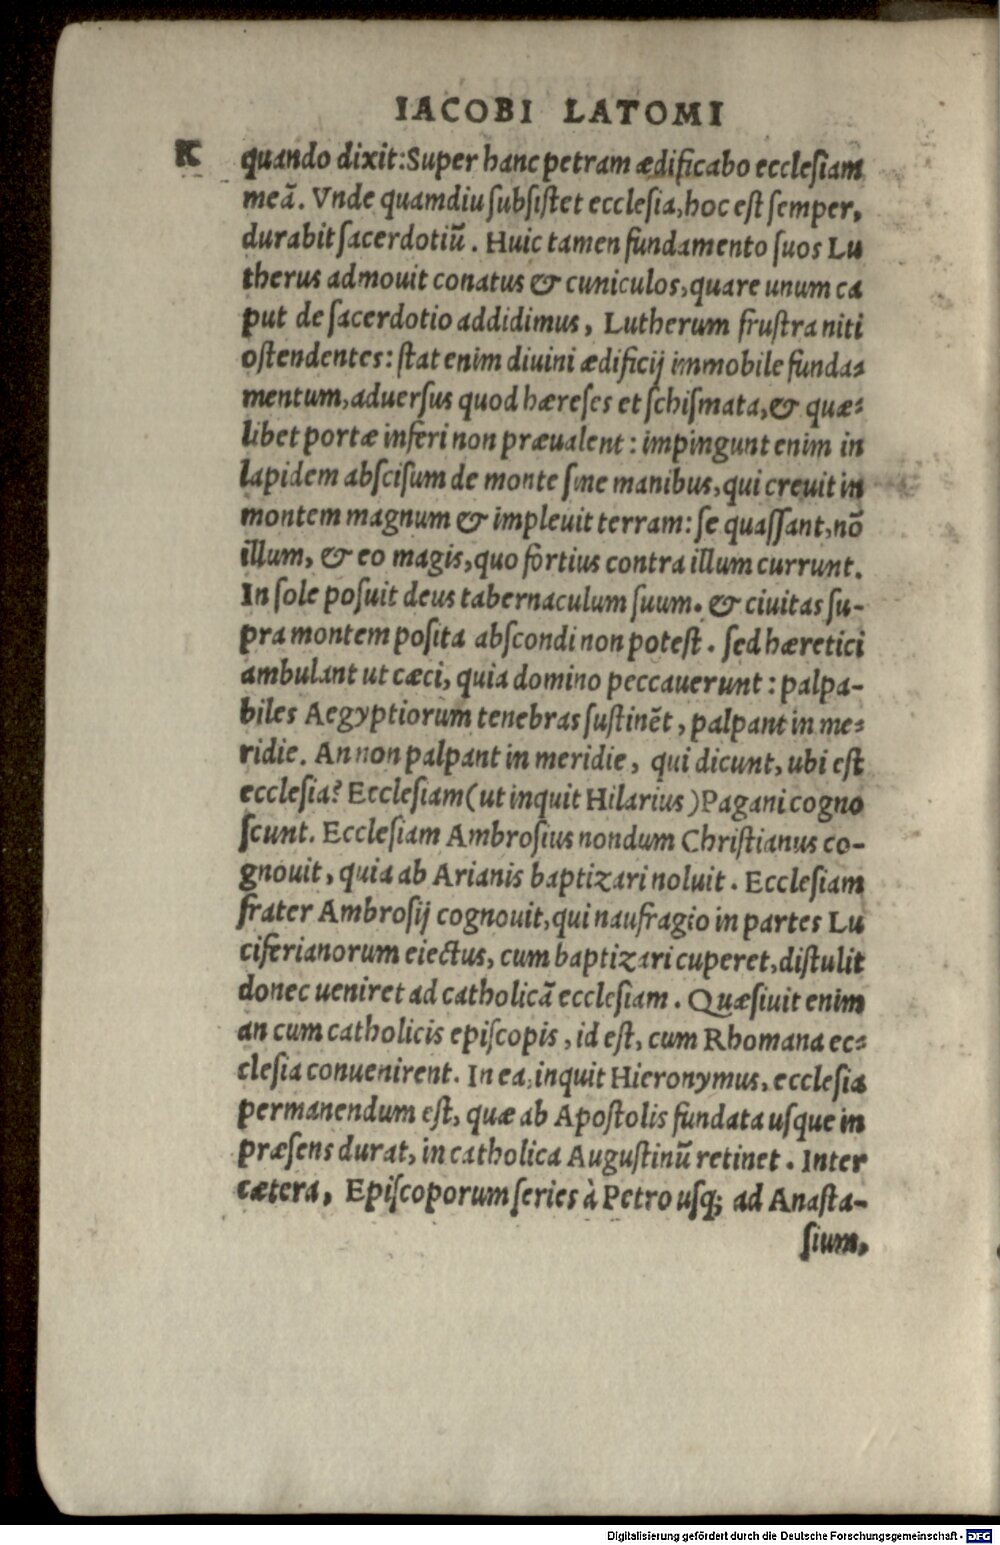 IACOBI LATOMI
K
quando dixit:Super hanc petram ædificabo ecclesiam
meã. Vnde quamdiu subsistet ecclesia, hoc est semper,
durabit sacerdotiũ. Huic tamen fundamento suos Lu
therus admouit conatus & cuniculos, quare unum ca
put de sacerdotio addidimus, Lutherum frustra niti
ostendentes: stat enim diuini ædificij immobile funda-
mentum, aduersus quod hæreses et schismata, & quæ-
libet portæ inferi non præualent: impingunt enim in
lapidem abscisum de monte sine manibus, qui creuit in
montem magnum & impleuit terram: se quassant, nõ
illum, & eo magis, quo fortius contra illum currunt.
In sole posuit deus tabernaculum suum. & ciuitas su-
pra montem posita abscondi non potest. sed hæretici
ambulant ut cæci, quia domino peccauerunt: palpa-
biles Aegyptiorum tenebras sustinẽt, palpant in me-
ridie. An non palpant in meridie, qui dicunt, ubi est
ecclesia? Ecclesiam (ut inquit Hilarius) Pagani cogno
scunt. Ecclesiam Ambrosius nondum Christianus co-
gnouit, quia ab Arianis baptizari noluit. Ecclesiam
frater Ambrosij cognouit, qui naufragio in partes Lu
ciferianorum eiectus, cum baptizari cuperet, distulit
donec ueniret ad catholicã ecclesiam. Quæsiuit enim
an cum catholicis episcopis, id est, cum Rhomana ec-
clesia conuenirent. In ea, inquit Hieronymus, ecclesia
permanendum est, quæ ab Apostolis fundata usque in
præsens durat, in catholica Augustinũ retinet. Inter
cætera, Episcoporum series à Petro usq; ad Anasta-
sium,
Digitalisierung gefördert durch die Deutsche Forschungsgemeinschaft - DFG